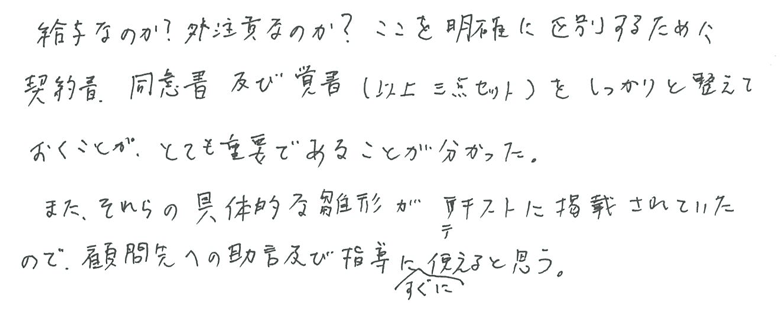 給与なのか?外注費なのか?ここを明確に区別するために
契約書、同意書及び覚書(以上三点セット)をしっかりと整えて
おくことが、とても重要であることが分かった。
また、それらの具体的な雛形がテキストに掲載されていた
ので、顧問先への助言及び指導にすぐに使えると思う。